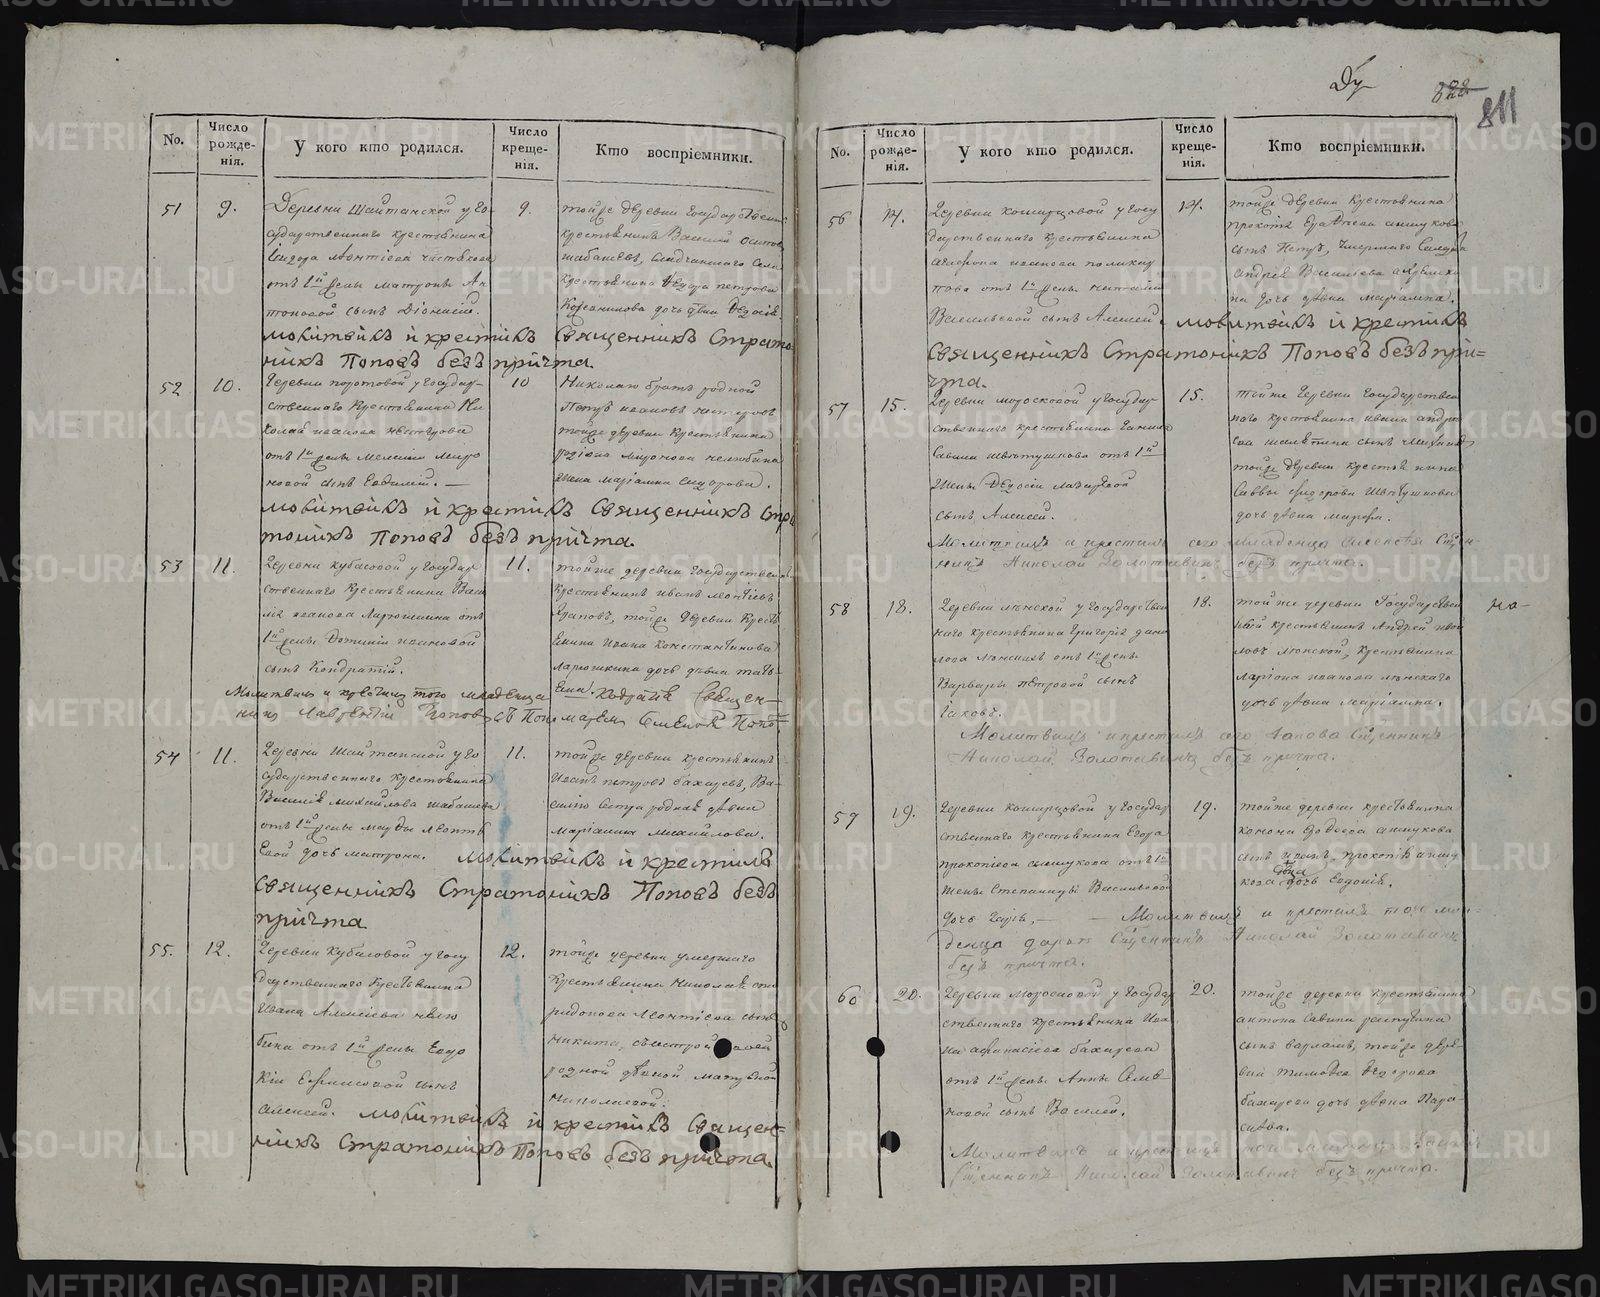 Ду
822
811
No.
Число рожде-нія.
У кого кто родился.
Число креще-нія.
Кто воспріемники.
51
9.
Деревни Шайтанской у го-
сударственнаго крестьянина
Сидора Леонтіева Чистякова
отъ 1й жены Матроны Ан
тоновой сынъ Діонисій.
9.
тойже деревни государствен
крестьянинъ Василий Осипов
Шабашевъ,
крестьянина Ѳедора Петрова
Кожевникова дочь дѣвка Ѳедосія
молитвилъ и крестилъ Священникъ Страто-
никъ Поповъ безъ причта.
52
10.
Деревни поротовой у государ-
ственнаго крестьянина Ни
колая Иванова Нестерова
отъ 1й жены Меланіи Миро
новой сынъ Евдоким.
10
Николаю братъ родной
Петръ Ивановъ Нестеровъ
тойже деревни крестьянина
Родіона Миронова Нелюбина
жена Маріамна Сидорова.
молитвилъ и крестилъ Священникъ Стра
тоникъ Поповъ безъ причта.
53
11.
Деревни Кубасовой у государ
ственнаго крестьянина Васи
лія Иванова Ларюшкина отъ
1й жены Домникіи Ивановой
сынъ Кондратій.
11.
тойже деревни государственн
крестьянинъ Иванъ Леонтіевъ
тойже деревни крест
янина Ивана Константинова
Ларюшкина дочь дѣвка Тать
яна.
Молитвилъ и крестилъ того младенца Кодратія Священ-
никъ Лаврентій Поповъ съ Пономаремъ Семеномъ Попо
54
11.
Деревни Шайтанской у го
сударственнаго крестьянина
Василія Михайлова Шабашева
отъ 1й жены Марѳы Леонть
евой дочь Матрона.
11.
тойже деревни крестьянинъ
Иванъ Петровъ Бахаревъ, Ва-
силію сестра родная дѣвка
Маріамна Михайлова.
молитвилъ и крестилъ
Священникъ Стратоникъ Поповъ безъ
причта
55.
12.
Деревни Кубасовой у госу
дарственнаго крестьянина
Ивана Алексіева Нелю
бина отъ 1й жены Евдо
кіи Ефимовой сынъ
Алексей.
12.
тойже деревни умершаго
крестьянина Николая Спи
ридонова Леонтіева сынъ
Никита, съ сестрой своей
родной дѣвкой Матреной
Николаевой.
молитвилъ и крестилъ Священ-
никъ Стратоникъ Поповъ безъ причта.
No.
Число рожде-нія.
У кого кто родился.
Число креще-нія.
Кто воспріемники.
56
14.
Деревни Кошарцовой у госу
дарственнаго крестьянина
Агафона Иванова Поликар
пова отъ 1й жены Наталіи
Васильевой сынъ Алексей.
14.
тойже деревни крестьянина
Прокопія
сынъ Петръ, умершаго Солдата
Андрея Васильева
на дочь дѣвка Маріамна.
молитвилъ и крестилъ
Священникъ Стратоникъ Поповъ безъ при-
чта.
57
15.
Деревни Моросковой у государ
ственнаго крестьянина Данила
Савина Шветушкова отъ 1й
жены Ѳедосіи Лазаревой
сынъ Алексей.
15.
тойже деревни государствен
наго крестьянина Ивана Андре
ева сынъ Михаилъ
тойже деревни крестьянина
Саввы Ѳедорова Шветушкова
дочь дѣвка Марѳа.
Молитвилъ и крестилъ сего младенца Алексея Священ-
никъ Николай Золотавинъ безъ причта.
58
18.
Деревни Ленской у государствен
наго крестьянина Григорія Дани
лова Ленскихъ отъ 1й жены
Варвары Петровой сынъ
Іаковъ.
18.
тойже деревни государствен
ный крестьянинъ Андрей Ива
новъ Ленской, крестьянина
Ларіона Иванова Ленскаго
дочь дѣвка Маріамна.
на-
Молитвилъ и крестилъ сего Іакова Священникъ
Николай Золотавинъ безъ причта.
59
19.
Деревни Кошарцовой у государ
ственнаго крестьянина Егора
Прокопіева отъ 1й
жены Степаниды Васильевой
дочь Дарья.
19.
тойже деревни крестьянина
Конона
сынъ Иванъ, Прокопія
кова дочь Евдокія.
Молитвилъ и крестилъ того мла-
денца Дарью Священникъ Николай Золотавинъ
безъ причта.
60
20.
Деревни Моросковой у государ
ственнаго крестьянина Ива
на Афанасіева Бахарева
отъ 1й жены Анны Семе
новой сынъ Василей.
20.
тойже деревни крестьянина
Антона Савина
сынъ Варламъ, тойже дере-
вни Тимоѳея Ѳедорова
Бахарева дочь дѣвка Пара-
скева.
Молитвилъ и крестилъ того младенца Василія
Священникъ Николай Золотавинъ безъ причта.